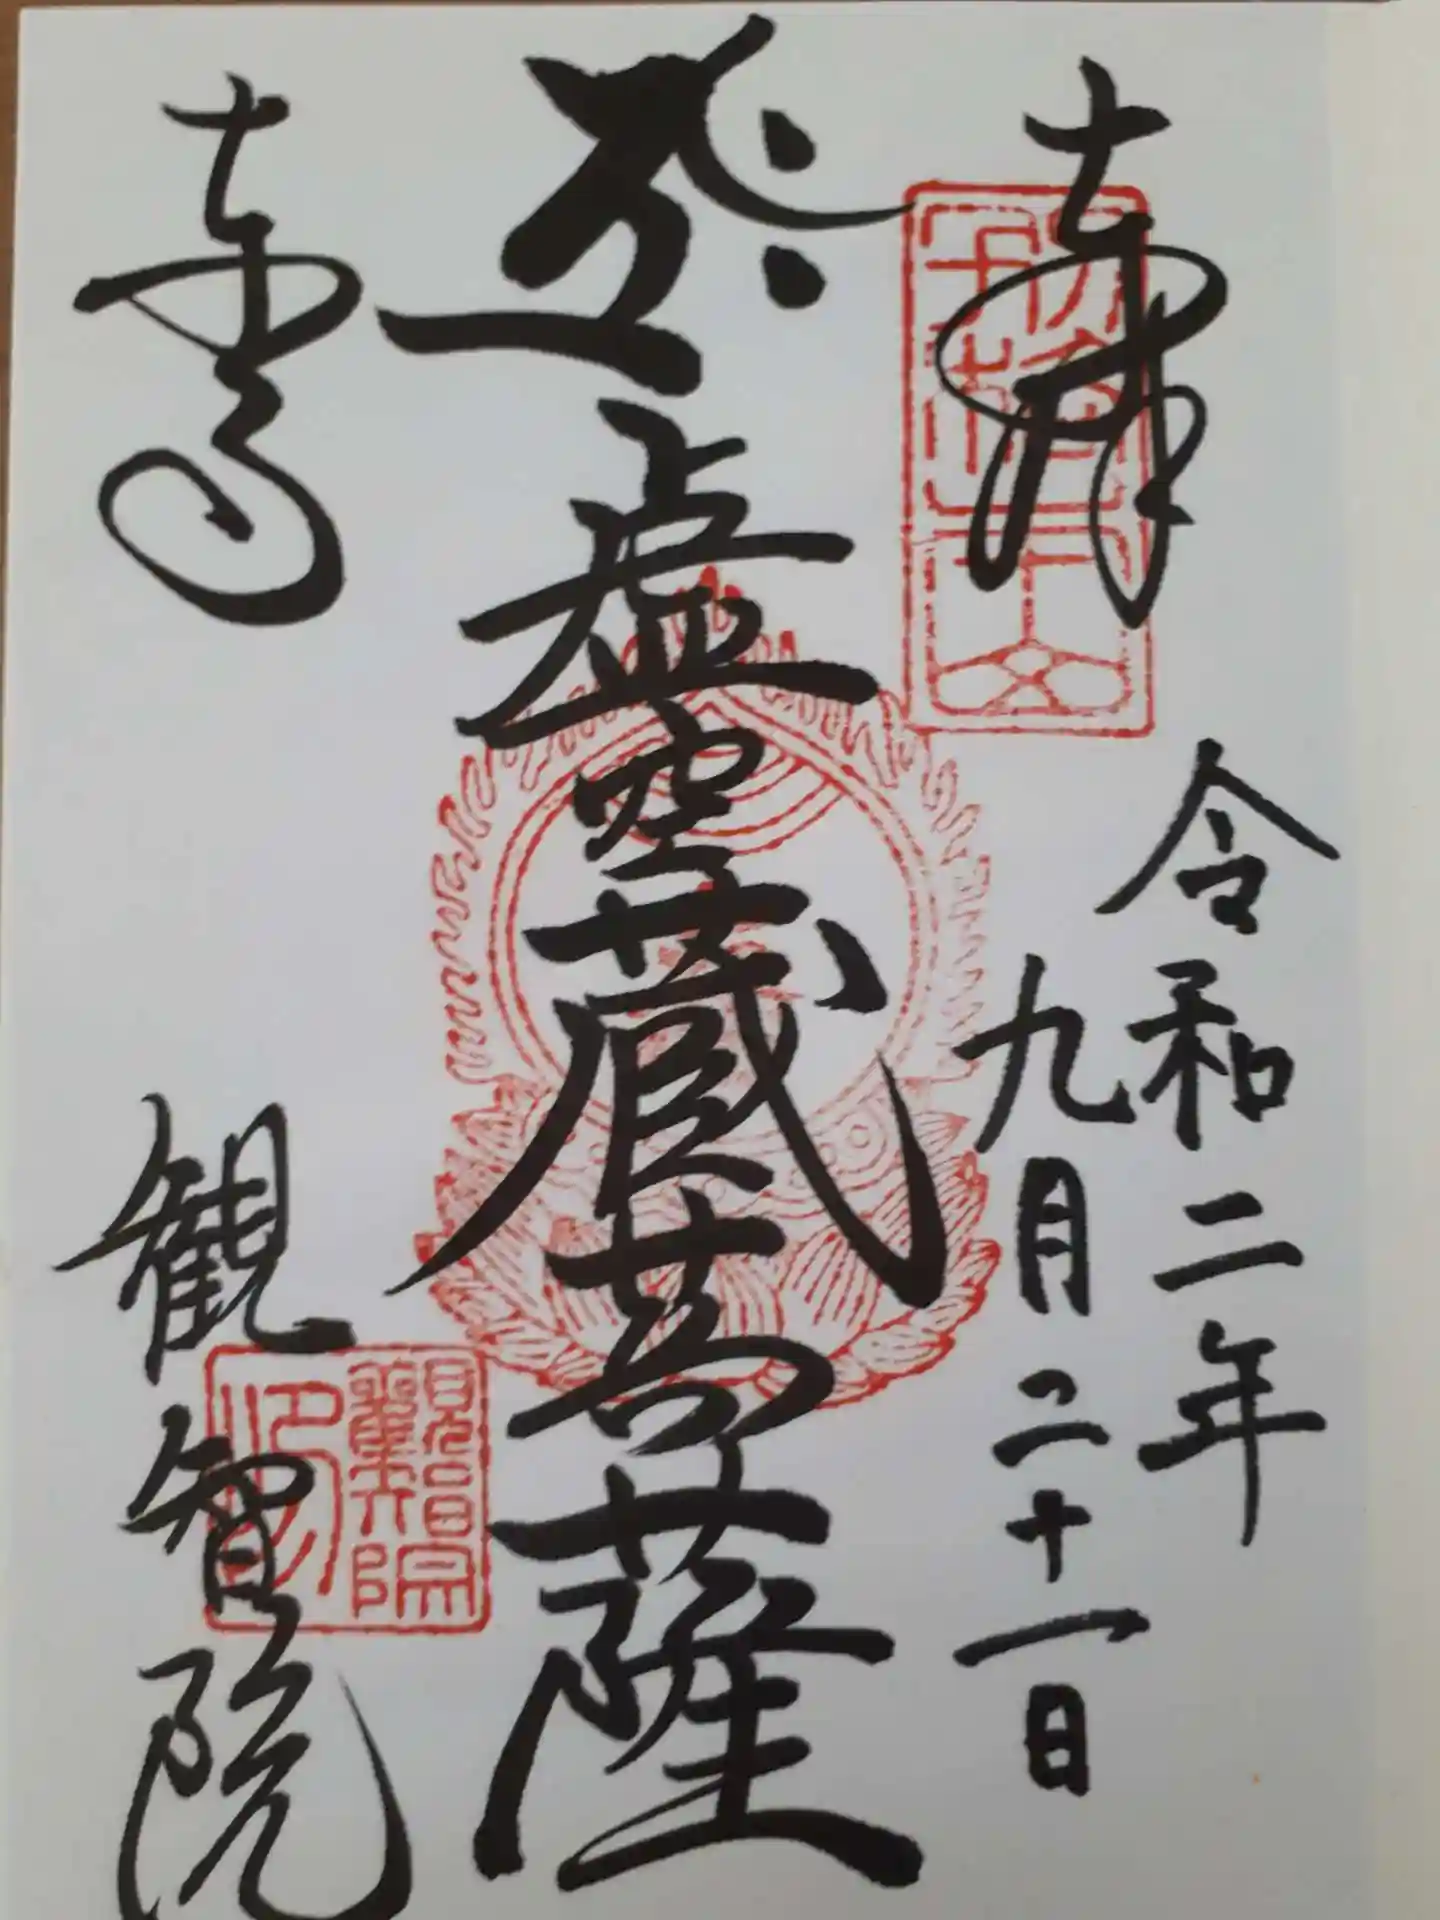 奉拝
令和二年
九月二十一日
虚空蔵菩薩
東寺
観智院
觀智院印